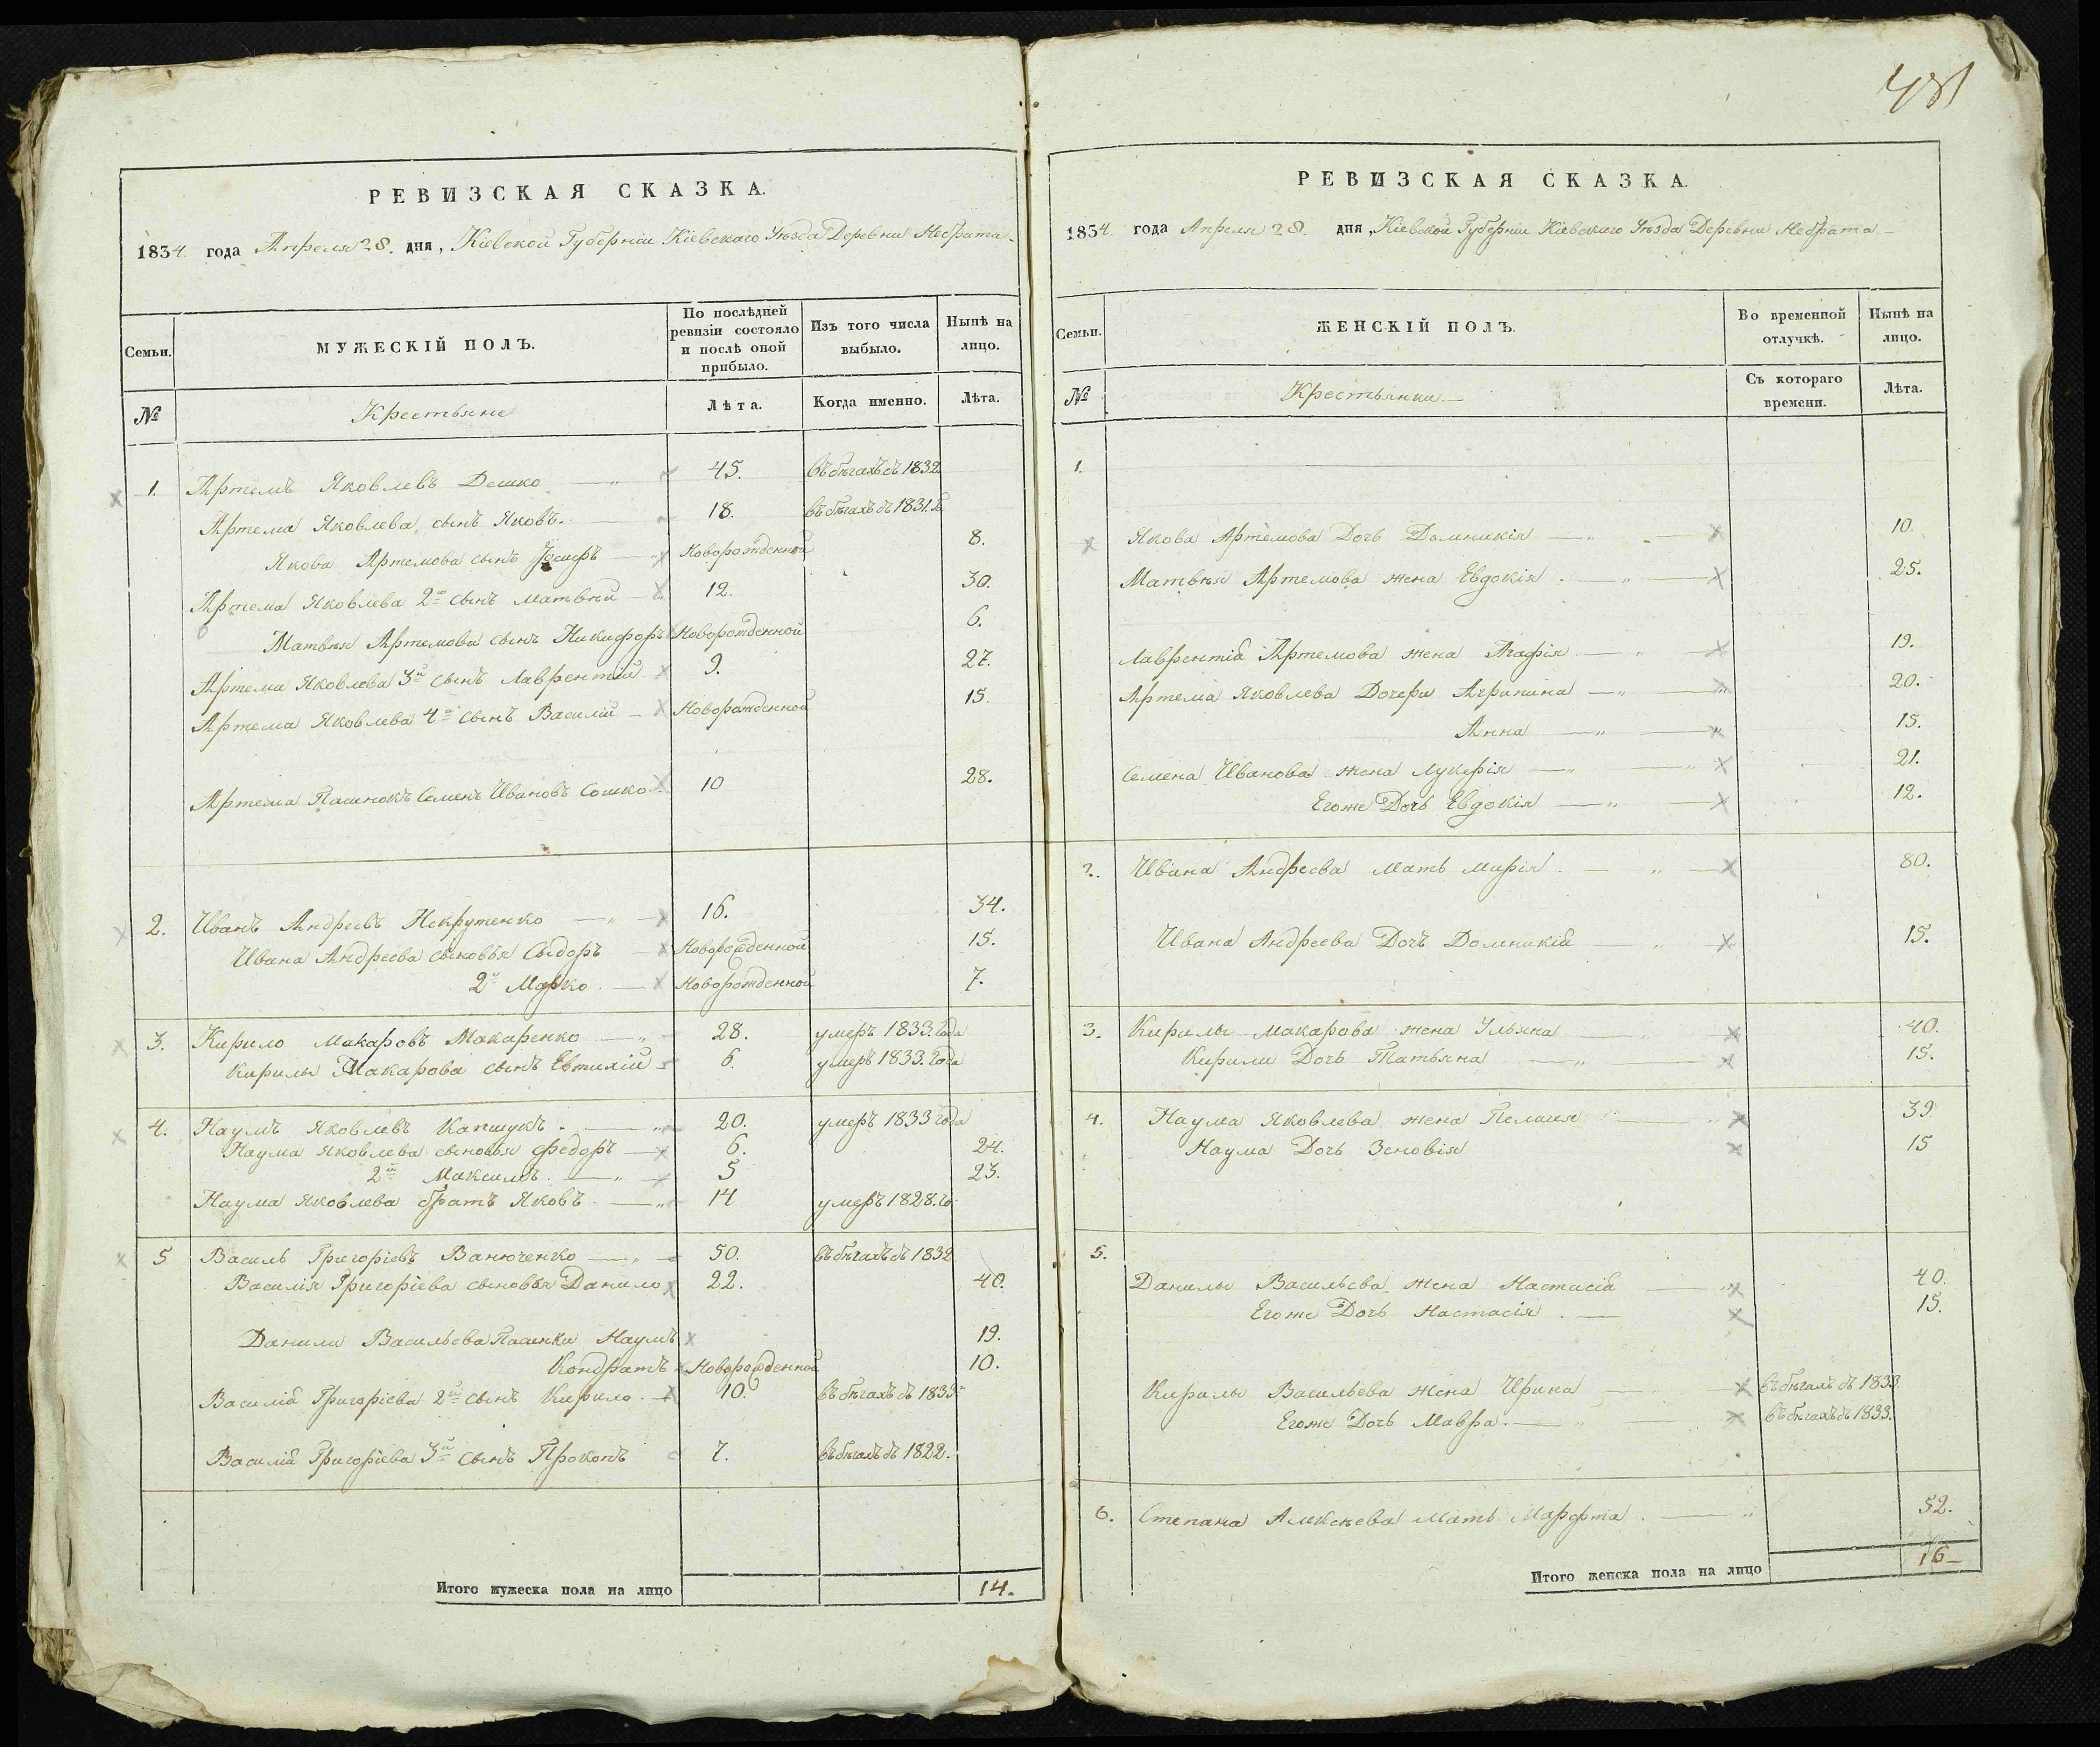 481
РЕВИЗСКАЯ СКАЗКА.
1834. года Апреля 28. дня, Кіевской Губерніи Кіевскаго Уѣзда Деревни Небрата
Семьи.
МУЖЕСКІЙ ПОЛЪ.
По послѣдней ревизіи состояло и послѣ оной прибыло.
Изъ того числа выбыло.
Нынѣ на лицо.
№
Крестьяне
Лѣта.
Когда именно.
Лѣта.
1. Артемъ Яковлевъ Дешко 45. въ бѣгахъ съ 1832
Артема Яковлева сынъ Яковъ. 18. въ бѣгахъ съ 1831.
Якова Артемова сынъ Іосифъ Новорожденной 8.
Артема Яковлева 2й сынъ Матвѣй 12. 30.
Матвѣя Артемова сынъ Никифоръ Новорожденной 6.
Артема Яковлева 3й сынъ Лаврентій 9. 27.
Артема Яковлева 4й сынъ Василій Новорожденной 15.
Артема Пасинокъ Семенъ Ивановъ Сошко 10 28.
2. Иванъ Андреевъ Некрутенко 16. 34.
Ивана Андреева сыновья Сыдоръ Новорожденной 15.
2й Марко Новорожденной 7.
3. Кирило Макаровъ Макаренко 28. умеръ 1833. года
Кирилы Макарова сынъ Евтихій 6. умеръ 1833. года
4. Наумъ Яковлевъ Капшукъ. 20. умеръ 1833 года
Наума Яковлева сыновья Федоръ 6. 24.
2й Максимъ. 5 23.
Наума Яковлева братъ Яковъ 14 умеръ 1828. го
5 Василь Григоріевъ Ванюченко 50. въ бѣгахъ съ 1832
Василія Григоріева сыновья Данило 22. 40.
Данили Васильева Пасинки Наумъ 19.
Кондратъ Новорожденной 10.
Василія Григоріева 2й сынъ Кирило. 10. въ бѣгахъ съ 1833
Василія Григоріева 3й сынъ Прокопъ 7. въ бѣгахъ съ 1822.
Итого мужеска пола на лицо 14.
РЕВИЗСКАЯ СКАЗКА.
1834. года Апреля 28. дня, Кіевской Губерніи Кіевскаго Уѣзда Деревни Небрата
Семьи.
ЖЕНСКІЙ ПОЛЪ.
Во временной отлучкѣ.
Нынѣ на лицо.
№
Крестьянки
Съ котораго времени.
Лѣта.
1.
Якова Артемова Дочь Домникія 10.
Матвѣя Артемова жена Евдокія 25.
Лаврентія Артемова жена Агафія 19.
Артема Яковлева Дочери Агрипина 20.
Анна 15.
Семена Иванова жена Лукерія 21.
Егоже Дочь Евдокія 12.
2. Ивана Андреева мать Марія 80.
Ивана Андреева Дочь Домникія 15.
3. Кирилы Макарова жена Ульяна 40.
Кирили Дочь Татьяна 15.
4. Наума Яковлева жена Пелагея 39.
Наума Дочь Зеновія 15
5.
Данилы Васильева жена Настасія 40.
Егоже Дочь Настасія 15.
Кирилы Васильева жена Ирина въ бѣгахъ съ 1833
Егоже Дочь Мавра. въ бѣгахъ съ 1833.
6. Степана Алексѣева мать Марфта 52.
Итого женска пола на лицо 16